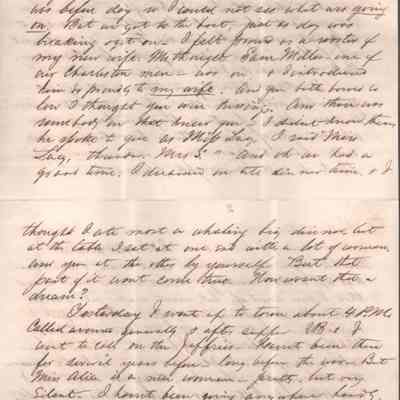 was before day so I could not see what was going
on. But we got to the boat, just as day was
breaking right on – I felt proud as a rooster of
my new wife. Me thought Sam Miller – one of
our Charleston men – was on & I introduced
him so proudly to my wife. And you both bowed so
low I thought you were kissing. And there was
somebody on that knew you – I didn't know them
he spoke to you as Miss Lucy. I said Miss
Lucy, thunder, Mrs S." And oh we had a
good time. I dreamed we ate dinner there. & I
thought I ate most a whaling big dinner, but
at the table I sat at one end with a lot of women
and you at the other by yourself. But that
part of it wont come true. Now wasnt that a
dream?
Yesterday I went up to town about 4 P.M.
Called around generally & after supper B & I
went to call on the Jeffries. Hadn't been there
for several years before – long before the war. But
Miss Alice is a nice woman – pretty, but very
silent. I havnt been going anywhere hardly